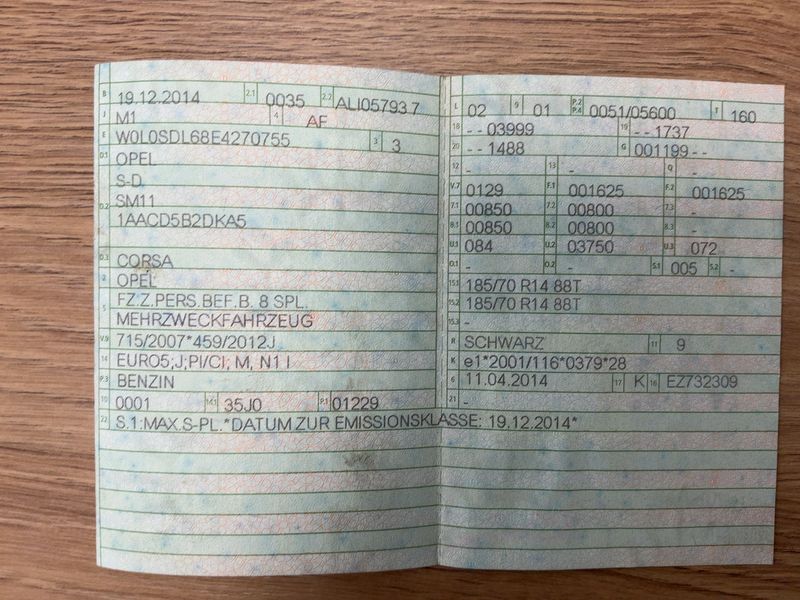 B 19.12.2014 2.1 0035 2.2 ALI05793 7
J M1 4 AF
E W0L0SDL68E4270755 3 3
D.1 OPEL
S-D
D.2 SM11
1AACD5B2DKA5
D.3 CORSA
2 OPEL
5 FZ.Z.PERS.BEF.B. 8 SPL.
MEHRZWECKFAHRZEUG
V.9 715/2007*459/2012J
14 EURO5;J;PI/CI; M, N1 I
P.3 BENZIN
10 0001 14.1 35J0 P.1 01229
22 S.1:MAX.S-PL.*DATUM ZUR EMISSIONSKLASSE: 19.12.2014*
L 02 9 01 P.2 P.4 0051/05600 T 160
18 - - 03999 19 - - 1737
20 - - 1488 G 001199 - -
12 - 13 - Q -
V.7 0129 F.1 001625 F.2 001625
7.1 00850 7.2 00800 7.3 -
8.1 00850 8.2 00800 8.3 -
U.1 084 U.2 03750 U.3 072
O.1 - O.2 - S.1 005 S.2 -
15.1 185/70 R14 88T
15.2 185/70 R14 88T
15.3 -
R SCHWARZ 11 9
K e1*2001/116*0379*28
6 11.04.2014 17 K 16 EZ732309
21 -